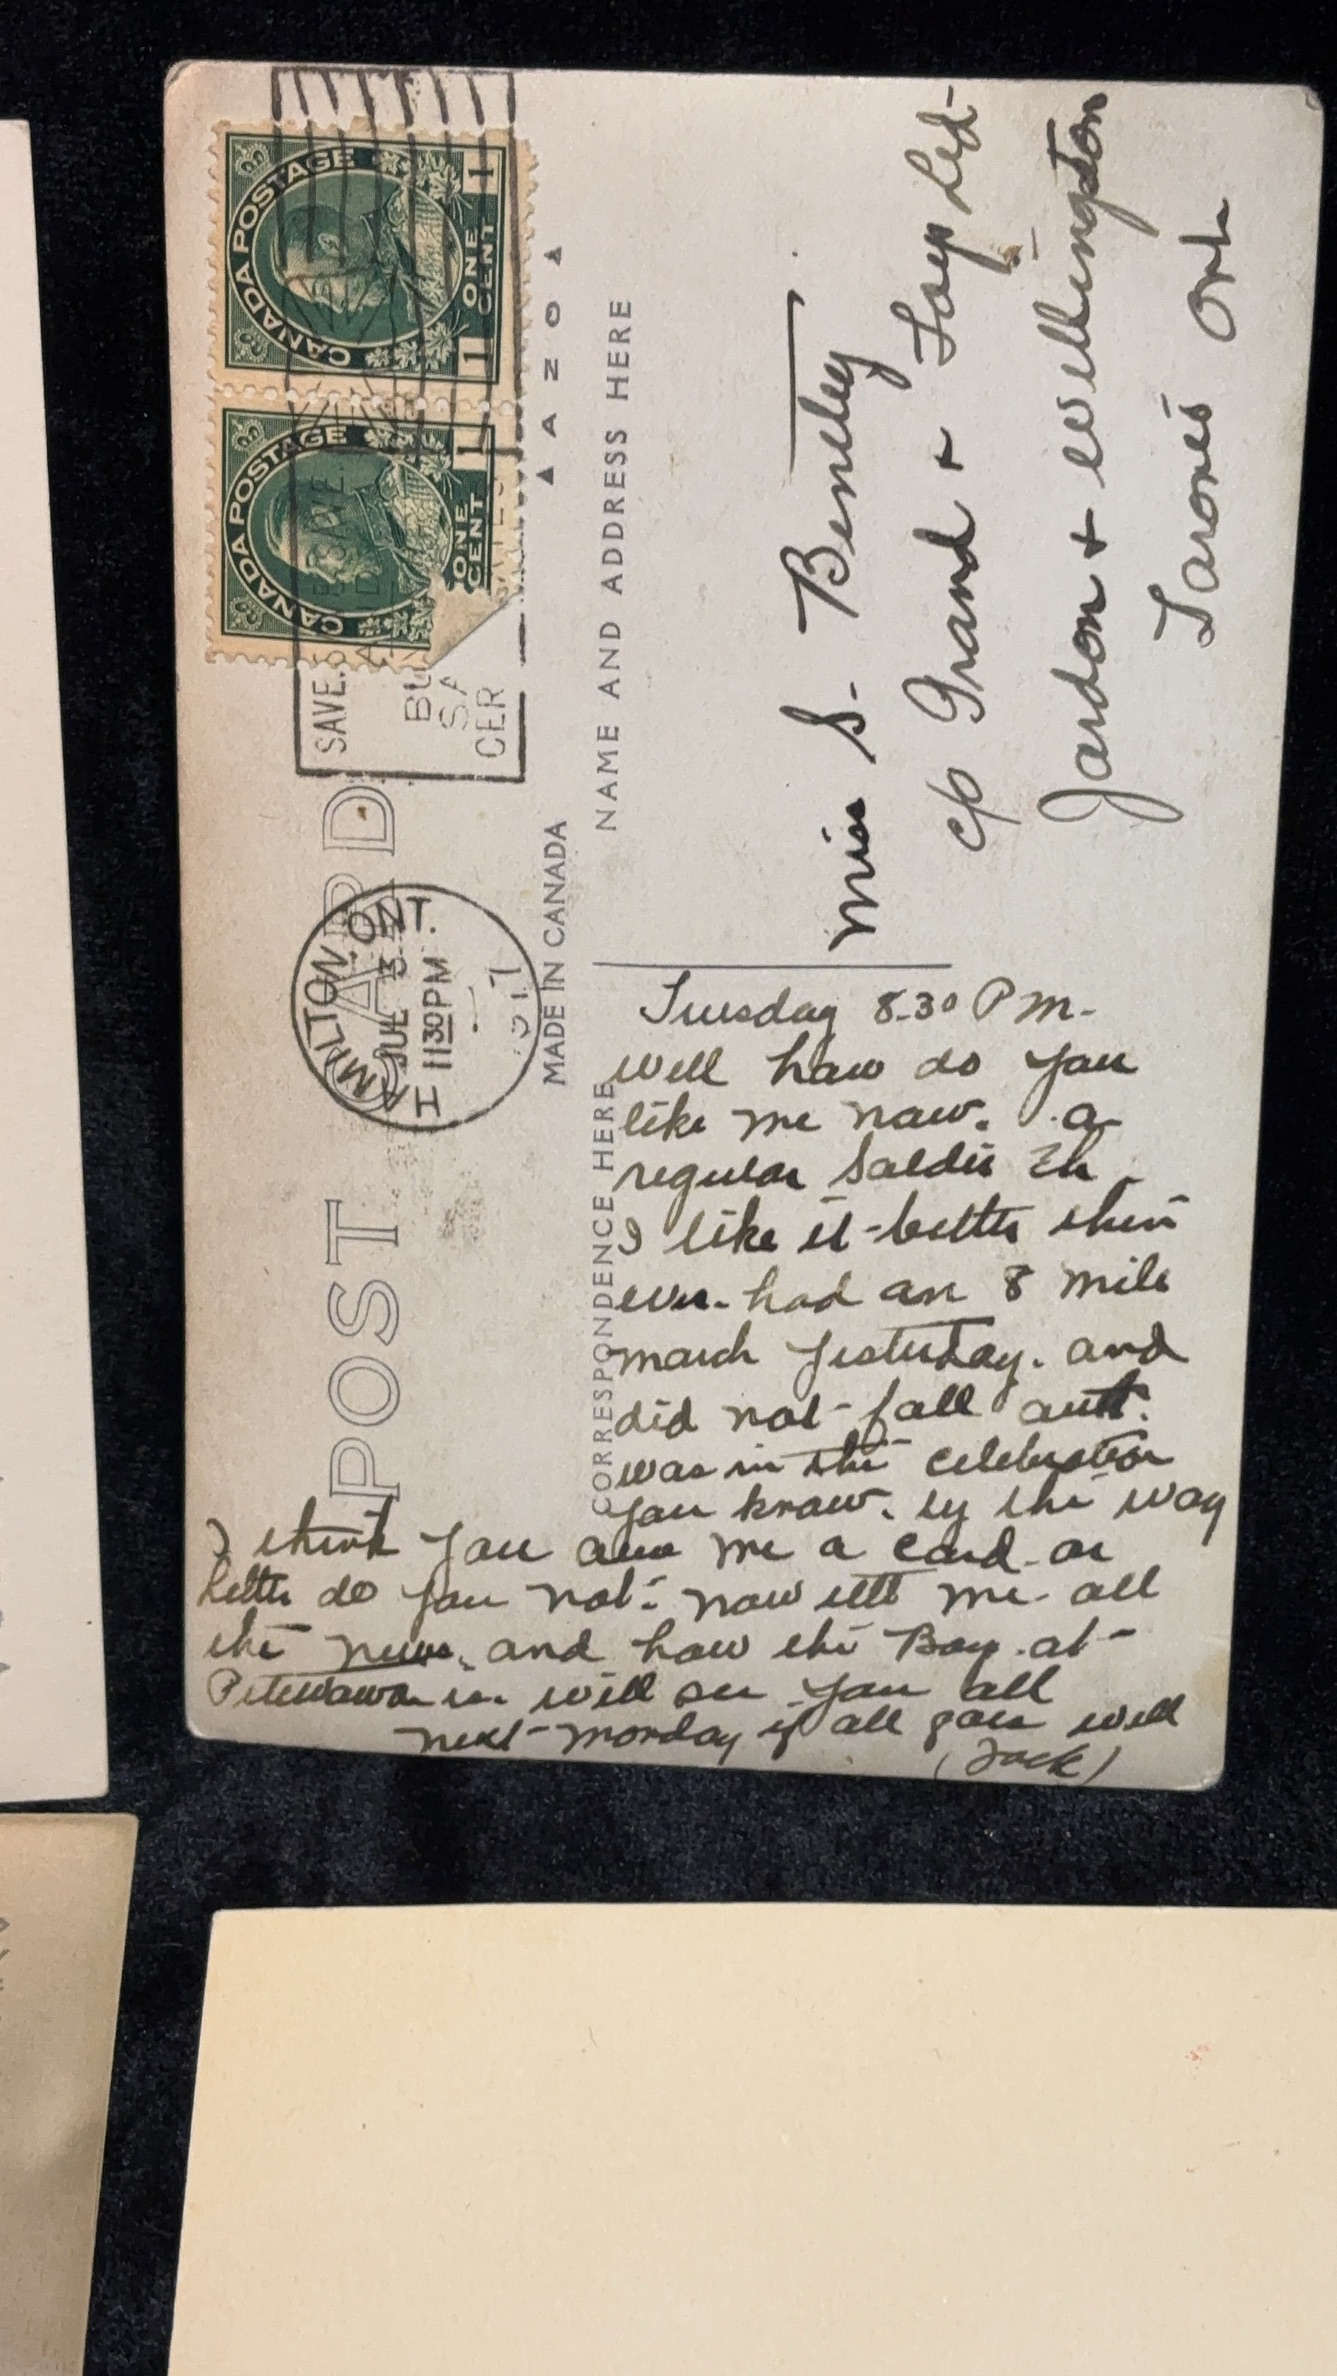 CANADA POSTAGE
1 ONE CENT 1
CANADA POSTAGE
ONE CENT 1
SAVE
SAVE
BU
SA
CER
HAMILTON, ONT.
JUL 3
1130 PM
1917
POST CARD
MADE IN CANADA
AZO
CORRESPONDENCE HERE
NAME AND ADDRESS HERE
Miss S. Bentley
c/o Grand & Toy Ltd-
Jardon + Wellington
Toronto Ont
Tuesday 8.30 P M-
well how do you
like me now. a
regular Soldier Eh
I like it better then
ever. had an 8 mile
march yesterday. and
did not fall out.
was in the celebration
you know. by the way
I think you owe me a card or
letter do you not. now tell me all
the news, and how the Boy at
Petewawa is. will see you all
next monday if all goes well
(Jack)